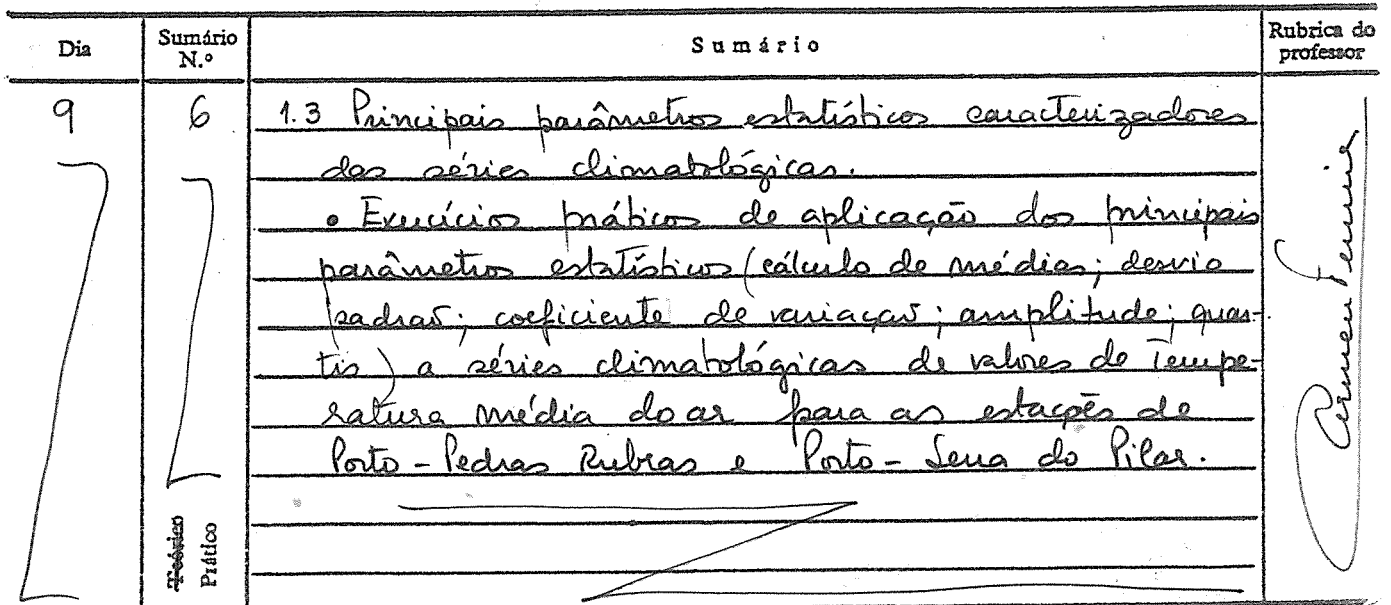 Dia Sumário N.º Sumário Rubrica do professor
9 6 1.3 Principais parâmetros estatísticos caracterizadores
das séries climatológicas.
• Exercícios práticos de aplicação dos principais
parâmetros estatísticos (cálculo de médias; desvio
padrão; coeficiente de variação; amplitude; quar-
tis) a séries climatológicas de valores de Tempe-
ratura média do ar para as estações de
Porto - Pedras Rubras e Porto - Serra do Pilar.
Teórico
Prático